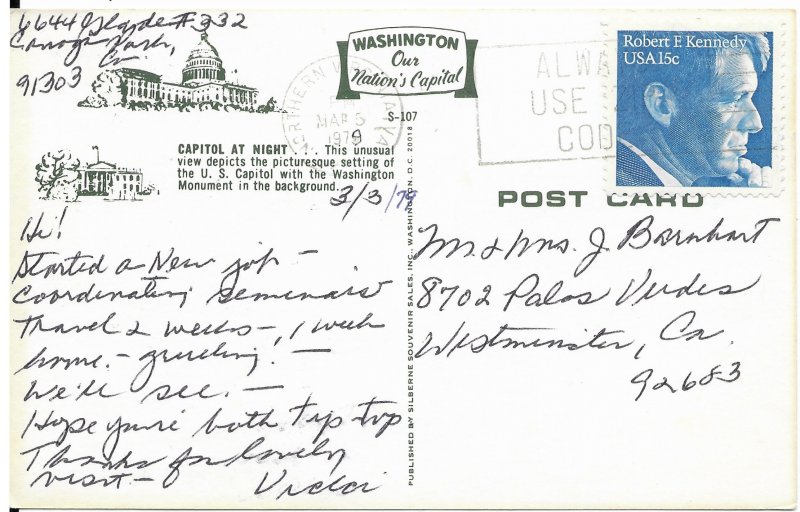 6644 Glade #332
Canoga Park,
Ca.
91303
WASHINGTON
Our
Nation's Capital
S-107
NORTHERN VIRGINIA VA
MAR 5
1979
ALWA
USE
COD
Robert F. Kennedy
USA 15c
CAPITOL AT NIGHT ... This unusual
view depicts the picturesque setting of
the U. S. Capitol with the Washington
Monument in the background.
3/3/79
POST CARD
Hi!
Started a New job –
Coordinating Seminars
Travel 2 weeks –, 1 week
home. – grueling. –
We'll see. –
Hope you're both tip top
Thanks for lovely
visit –
Vicki
PUBLISHED BY SILBERNE SOUVENIR SALES, INC., WASHINGTON, D.C. 20018
Mr. & Mrs. J. Barnhart
8702 Palos Verdes
Westminster, Ca.
92683